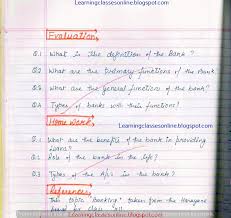 Learningclassesonline.blogspot.com
Evaluation
Q.1 What is the definition of the Bank?
Q.2 What are the primary functions of the Bank
Q.3 What are the general functions of the bank?
Q.4 Types of banks with this functions!
Learningclassesonline.blogspot.com
Home Work
Q.1 What are the benefits of the bank in providing
loans?
Q.2 Role of the bank in the life?
Q.3 Types of the A/c in the bank?
Learningclassesonline.blogspot.com
References
This topic 'Banking' taken from the Haryana